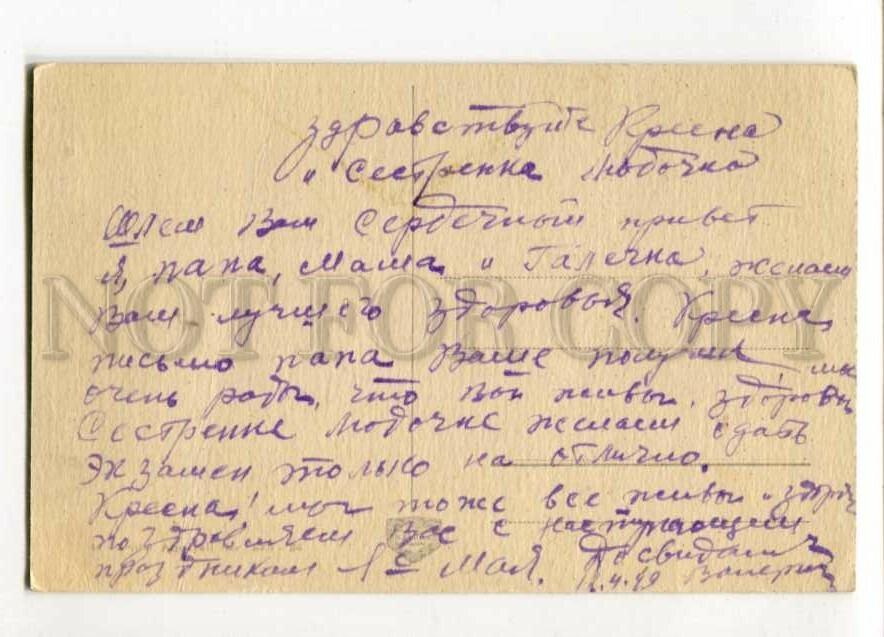 здравствуйте Кресна
и Сестренка Любочка
Шлем Вам Сердечный привет
Я, папа, мама и Галечка, желаем
Вам лучшего здоровья. Кресна,
письмо папа Ваше получил, мы
очень рады, что Вы живы, здоровы
Сестренке Любочке желаем сдать
Экзамен только на отлично.
Кресна! мы тоже все живы и здоровы
поздравляем Вас с наступающим
праздником 1 е Мая. Досвидания
4.49 Валерий
NOT FOR COPY